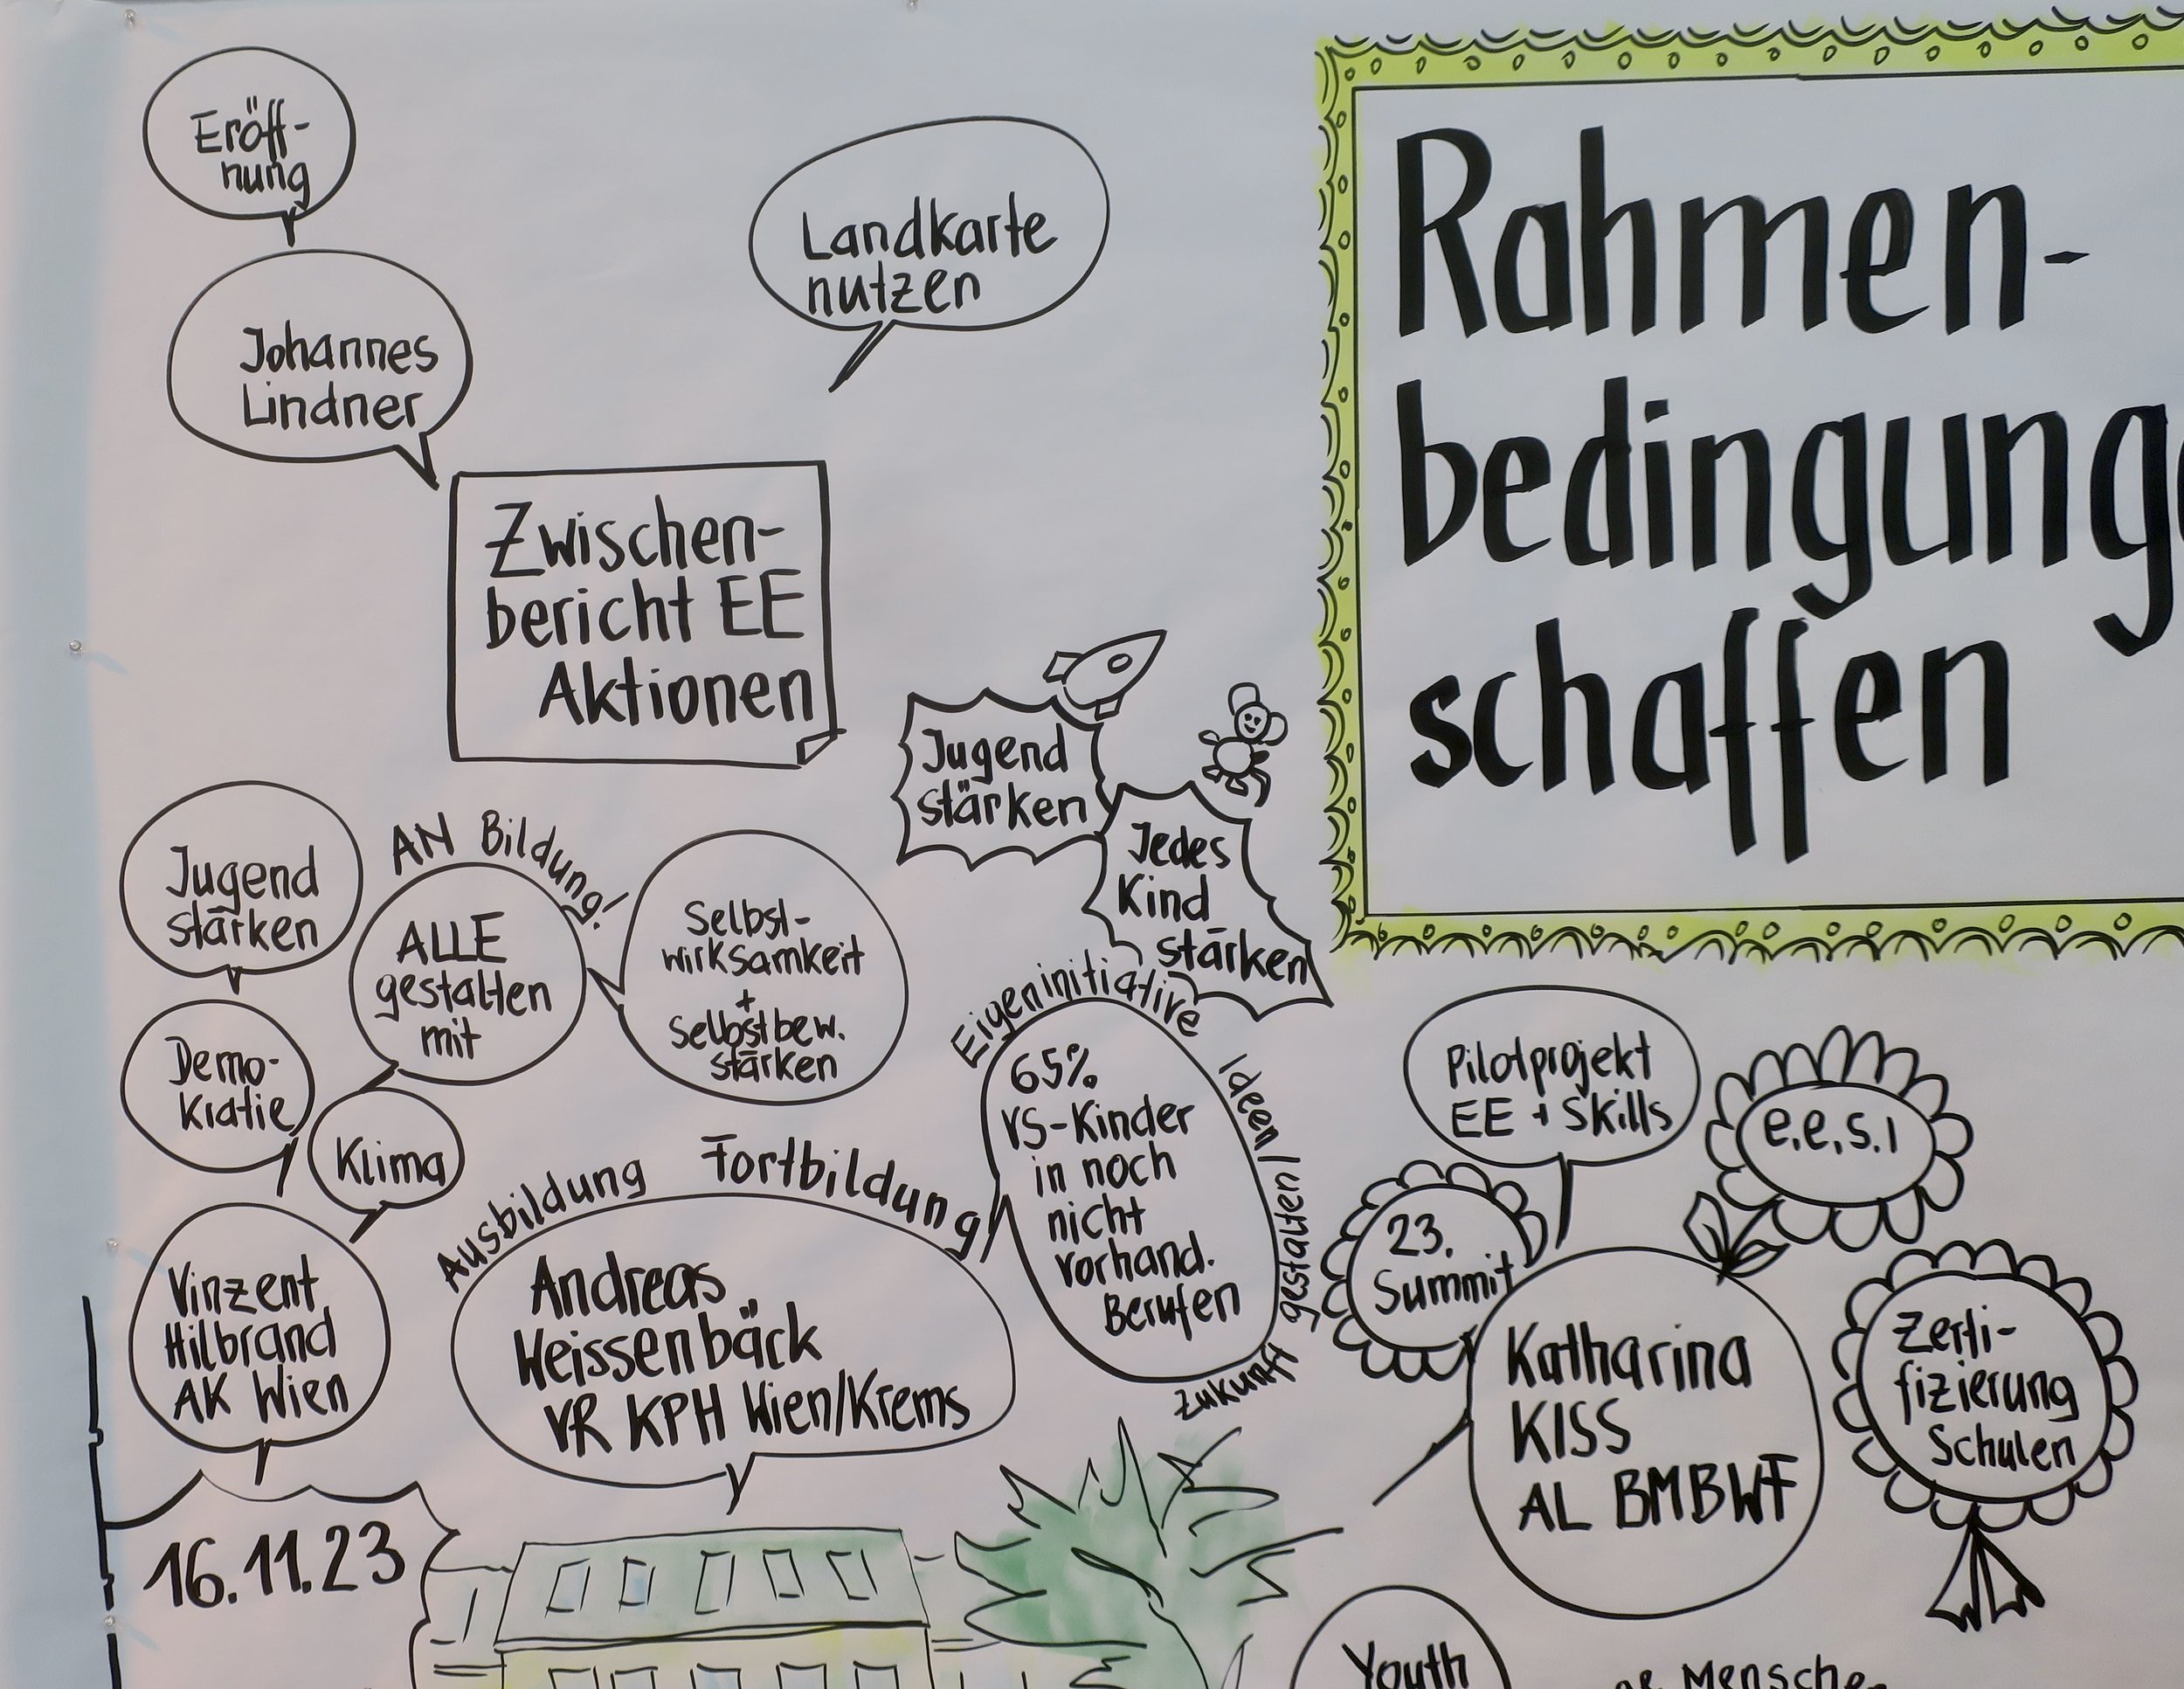 Eröff-
nung
Johannes
Lindner
Landkarte
nutzen
Zwischen-
bericht EE
Aktionen
Rahmen-
bedingung
schaffen
Jugend
stärken
Jedes
Kind
stärken
Jugend
stärken
AN Bildung!
ALLE
gestalten
mit
Selbst-
wirksamkeit
+
Selbstbew.
stärken
Demo-
kratie
Klima
Vinzent
Hilbrand
AK Wien
16.11.23
Ausbildung Fortbildung
Andreas
Weissenbäck
VR KPH Wien/Krems
Eigeninitiative
Ideen/
gestalten/
Zukunft
65%
VS-Kinder
in noch
nicht
vorhand.
Berufen
Pilotprojekt
EE + Skills
e.e.s.i
23.
Summit
Katharina
KISS
AL BMBWF
Zerti-
fizierung
Schulen
Youth